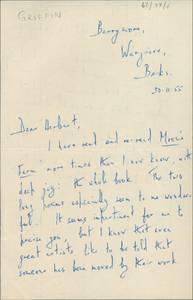 GRIFFIN
Berrymore,
Wargrave,
Berks.
30.11.55
Dear Herbert,
I have read and re-read Moon's
Farm more times than I now know, with
deep joy: the whole book. The two
long poems especially seem to me wonder-
ful. It seems impertinent for me to
praise you, but I know that even
great artists like to be told that
someone has been moved by their work